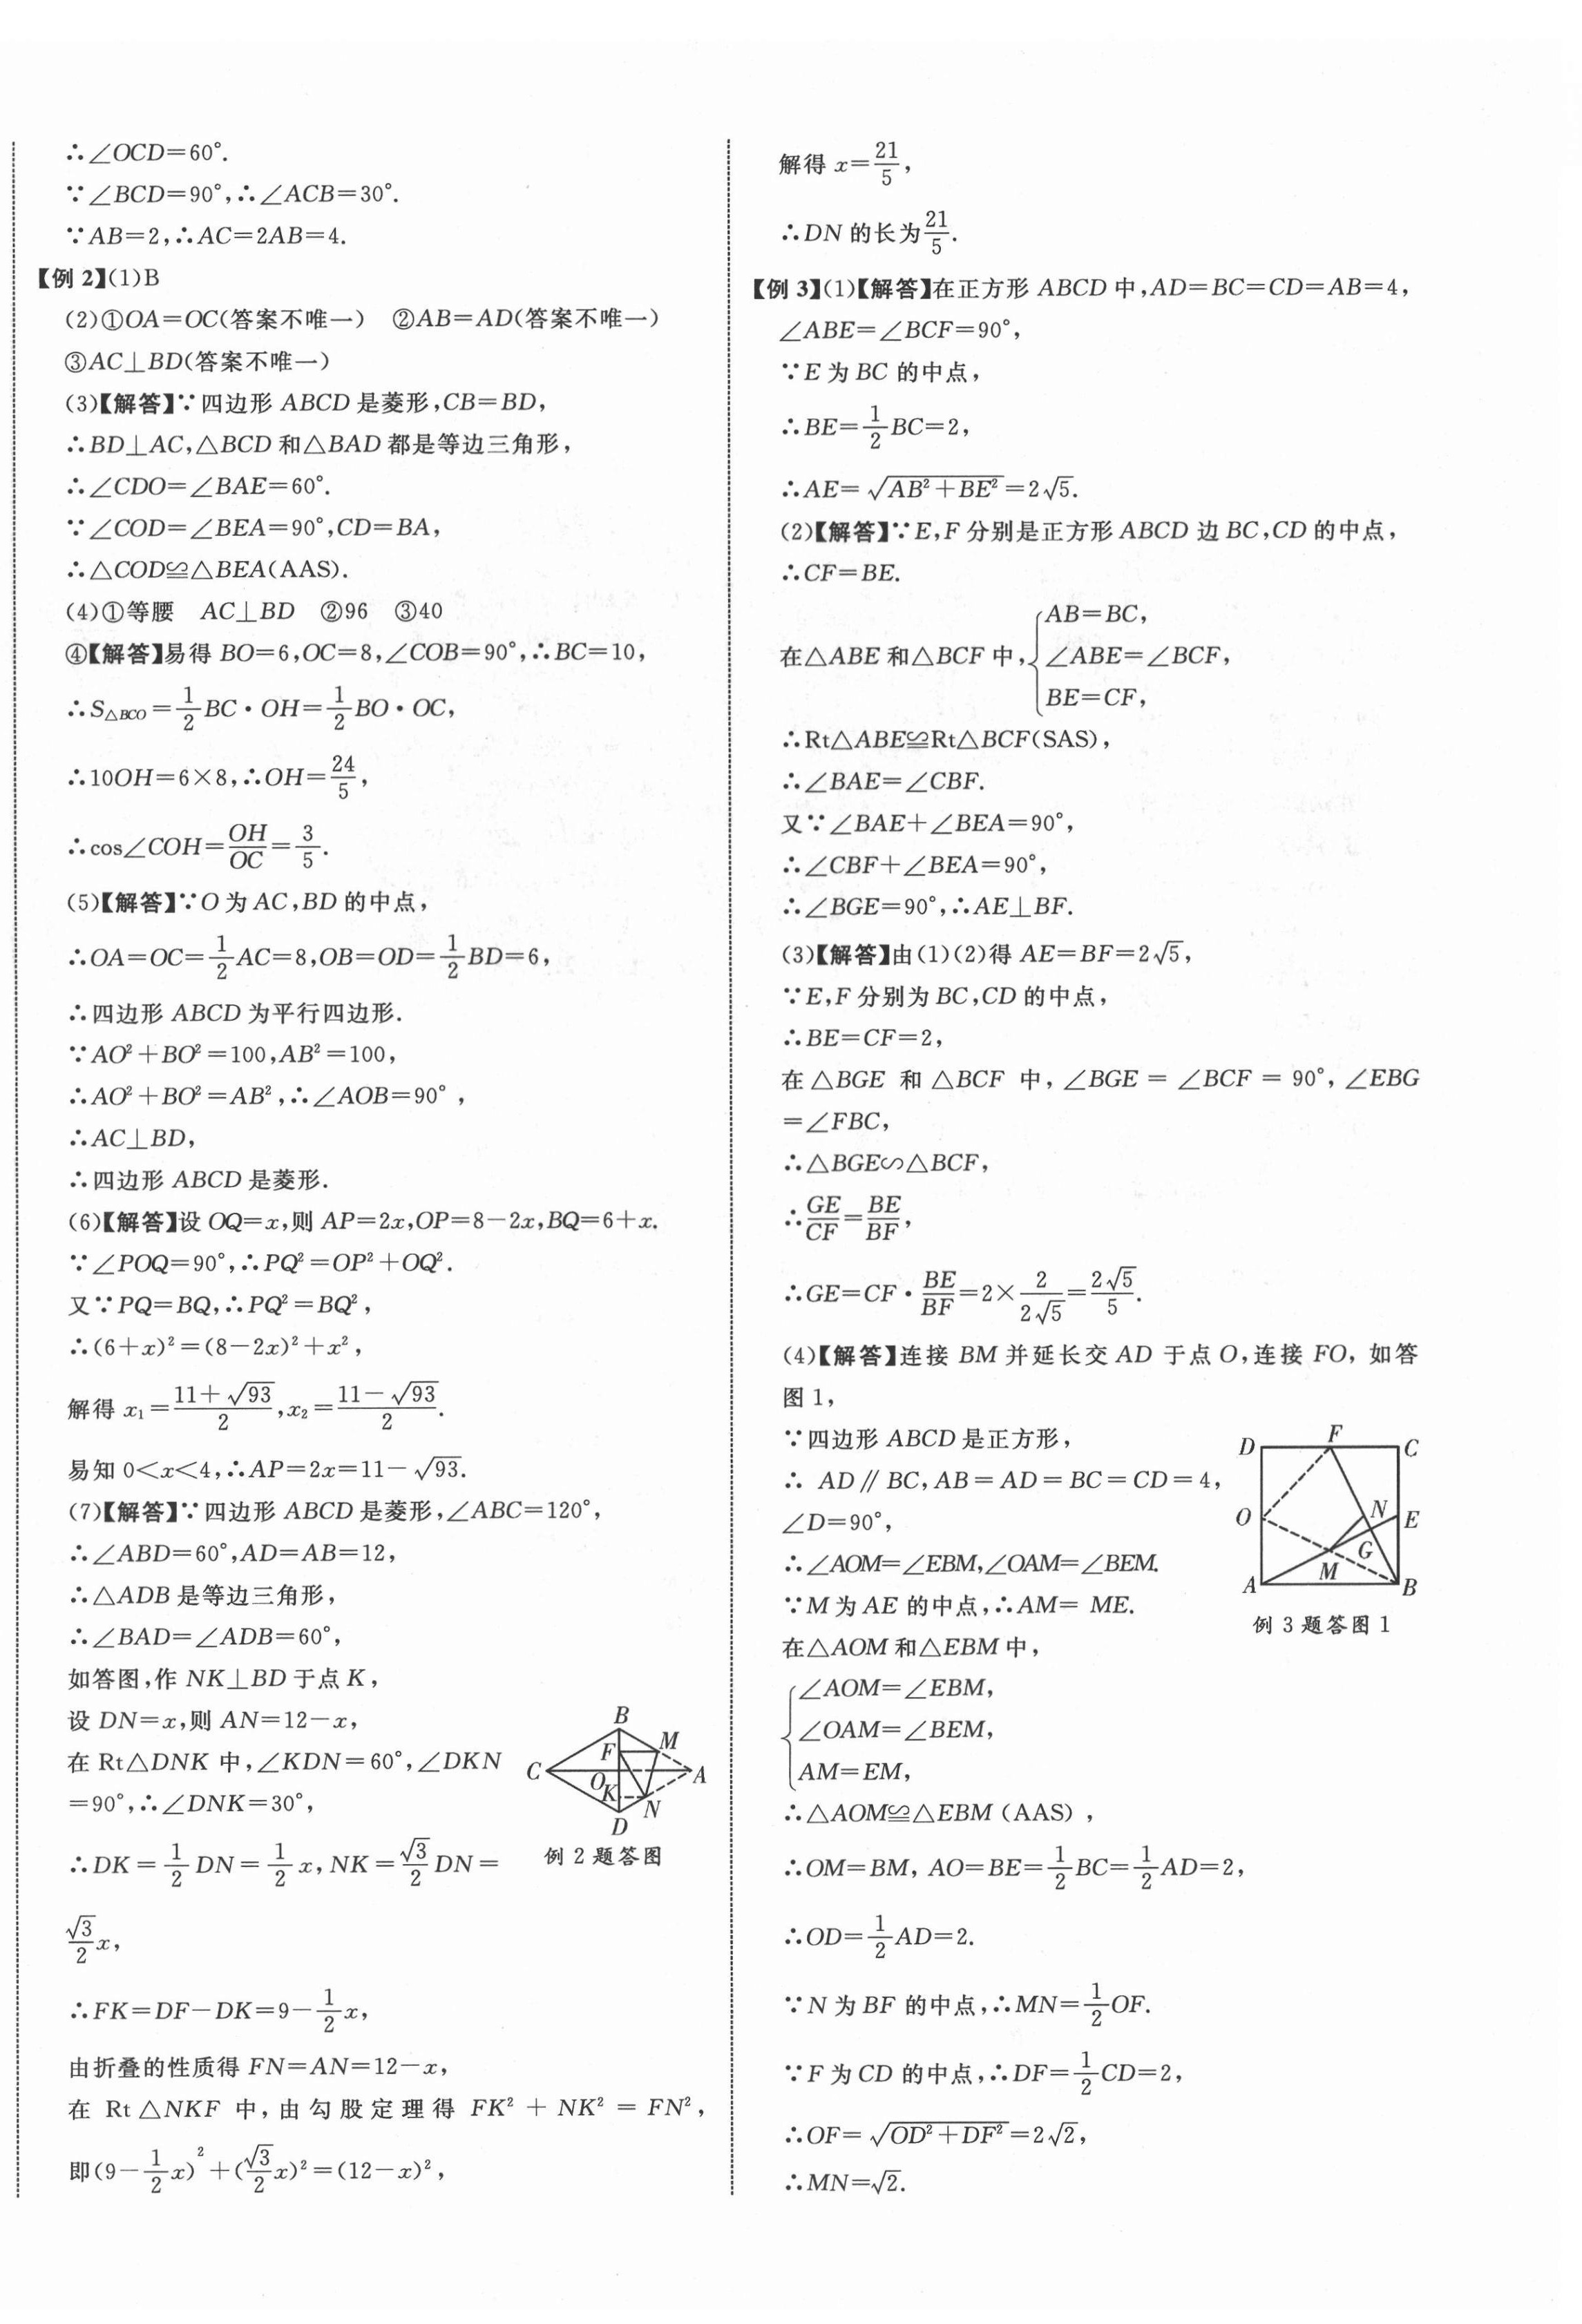 ∴∠OCD=60°.
∵∠BCD=90°,∴∠ACB=30°.
∵AB=2,∴AC=2AB=4.
【例2】(1)B
(2)①OA=OC(答案不唯一) ②AB=AD(答案不唯一)
③AC⊥BD(答案不唯一)
(3)【解答】∵四边形ABCD是菱形,CB=BD,
∴BD⊥AC,△BCD和△BAD都是等边三角形,
∴∠CDO=∠BAE=60°.
∵∠COD=∠BEA=90°,CD=BA,
∴△COD≌△BEA(AAS).
(4)①等腰 AC⊥BD ②96 ③40
④【解答】易得BO=6,OC=8,∠COB=90°,∴BC=10,
∴S△BCO=1/2BC·OH=1/2BO·OC,
∴10OH=6×8,∴OH=24/5,
∴cos∠COH=OH/OC=3/5.
(5)【解答】∵O为AC,BD的中点,
∴OA=OC=1/2AC=8,OB=OD=1/2BD=6,
∴四边形ABCD为平行四边形.
∵AO²+BO²=100,AB²=100,
∴AO²+BO²=AB²,∴∠AOB=90°,
∴AC⊥BD,
∴四边形ABCD是菱形.
(6)【解答】设OQ=x,则AP=2x,OP=8-2x,BQ=6+x.
∵∠POQ=90°,∴PQ²=OP²+OQ².
又∵PQ=BQ,∴PQ²=BQ²,
∴(6+x)²=(8-2x)²+x²,
解得x₁=(11+√93)/2,x₂=(11-√93)/2.
易知0<x<4,∴AP=2x=11-√93.
(7)【解答】∵四边形ABCD是菱形,∠ABC=120°,
∴∠ABD=60°,AD=AB=12,
∴△ADB是等边三角形,
∴∠BAD=∠ADB=60°,
如答图,作NK⊥BD于点K,
设DN=x,则AN=12-x,
在Rt△DNK中,∠KDN=60°,∠DKN
=90°,∴∠DNK=30°,
∴DK=1/2DN=1/2x,NK=√3/2DN=
√3/2x,
B
M
F
C
O
A
K
N
D
例2题答图
∴FK=DF-DK=9-1/2x,
由折叠的性质得FN=AN=12-x,
在Rt△NKF中,由勾股定理得FK²+NK²=FN²,
即(9-1/2x)²+(√3/2x)²=(12-x)²,
解得x=21/5,
∴DN的长为21/5.
【例3】(1)【解答】在正方形ABCD中,AD=BC=CD=AB=4,
∠ABE=∠BCF=90°,
∵E为BC的中点,
∴BE=1/2BC=2,
∴AE=√(AB²+BE²)=2√5.
(2)【解答】∵E,F分别是正方形ABCD边BC,CD的中点,
∴CF=BE.
AB=BC,
在△ABE和△BCF中,{∠ABE=∠BCF,
BE=CF,
∴Rt△ABE≌Rt△BCF(SAS),
∴∠BAE=∠CBF.
又∵∠BAE+∠BEA=90°,
∴∠CBF+∠BEA=90°,
∴∠BGE=90°,∴AE⊥BF.
(3)【解答】由(1)(2)得AE=BF=2√5,
∵E,F分别为BC,CD的中点,
∴BE=CF=2,
在△BGE和△BCF中,∠BGE=∠BCF=90°,∠EBG
=∠FBC,
∴△BGE∽△BCF,
∴GE/CF=BE/BF,
∴GE=CF·BE/BF=2×2/(2√5)=2√5/5.
(4)【解答】连接BM并延长交AD于点O,连接FO,如答
图1,
∵四边形ABCD是正方形,
∴AD∥BC,AB=AD=BC=CD=4,
∠D=90°,
∴∠AOM=∠EBM,∠OAM=∠BEM.
∵M为AE的中点,∴AM=ME.
D
F
C
O
N
E
G
M
A
B
例3题答图1
在△AOM和△EBM中,
{∠AOM=∠EBM,
∠OAM=∠BEM,
AM=EM,
∴△AOM≌△EBM(AAS),
∴OM=BM,AO=BE=1/2BC=1/2AD=2,
∴OD=1/2AD=2.
∵N为BF的中点,∴MN=1/2OF.
∵F为CD的中点,∴DF=1/2CD=2,
∴OF=√(OD²+DF²)=2√2,
∴MN=√2.